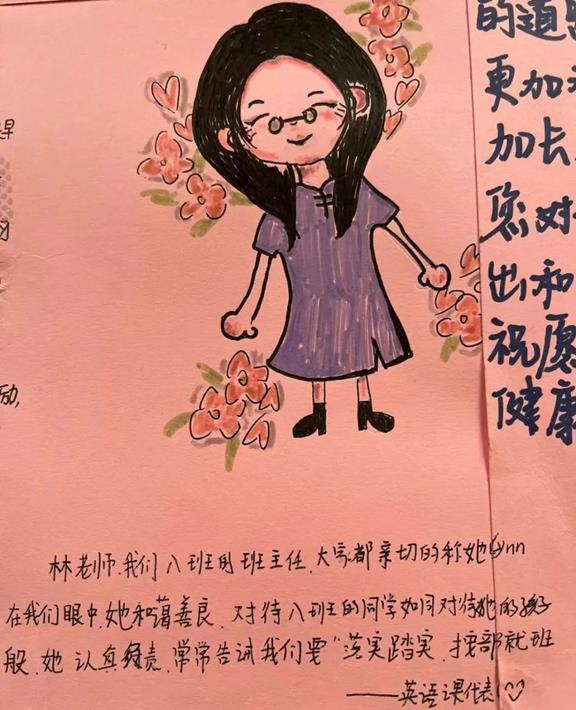 的道
更加
加长
您对
出和
祝愿
健康
动,
林老师,我们八班的班主任,大家都亲切的称她Lynn
在我们眼中,她和蔼善良,对待八班的同学如同对待她的孩子
般,她认真负责,常常告诉我们要“落实踏实,按部就班
——英语课代表